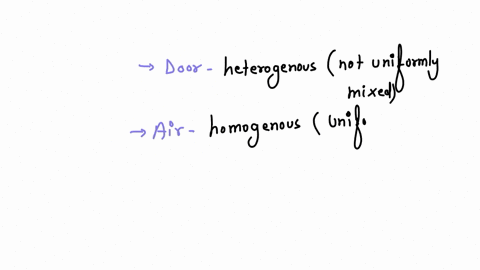 → Door - heterogenous (not uniformly
mixed)
→ Air - homogenous (unif.